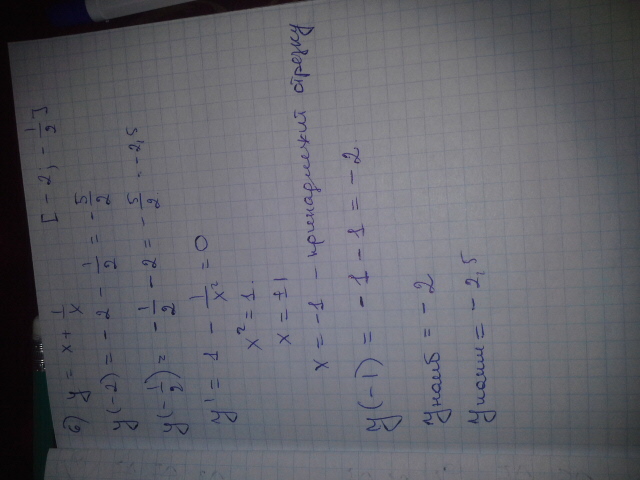 б) y = x + 1/x [-2; -1/2]
y(-2) = -2 - 1/2 = -5/2
y(-1/2) = -1/2 - 2 = -5/2 = -2,5
y' = 1 - 1/x² = 0
x² = 1.
x = ±1
x = -1 - принадлежит отрезку
y(-1) = -1 - 1 = -2
yнаиб = -2
yнаим = -2,5